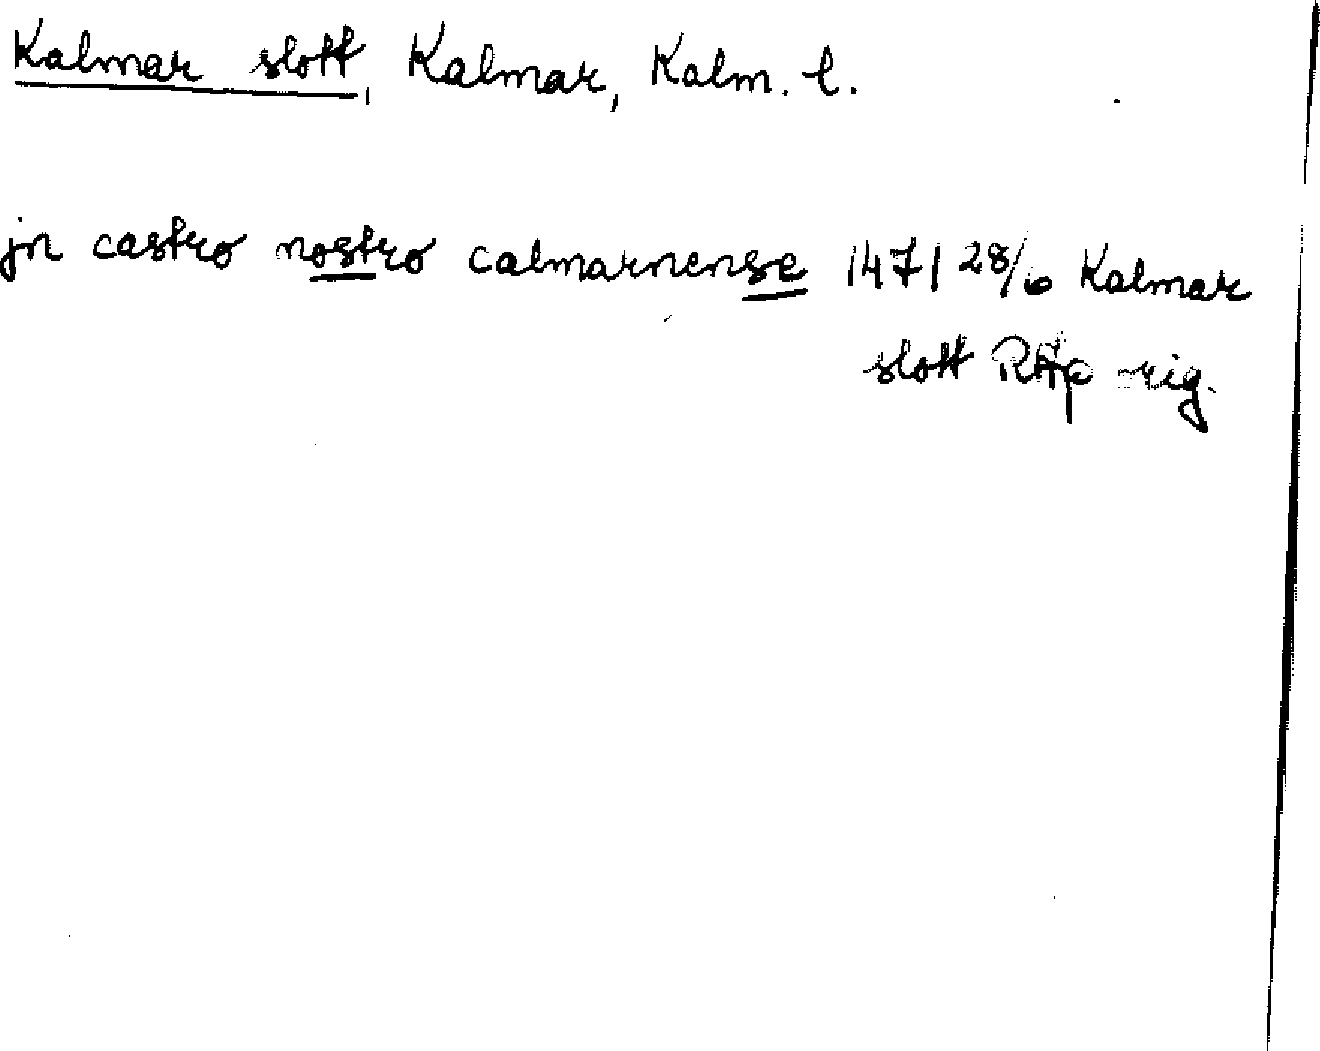 Kalmar slott, Kalmar, Kalm. l.
jn castro nostro calmarnense 1471 28/6 Kalmar
slott RAp orig.